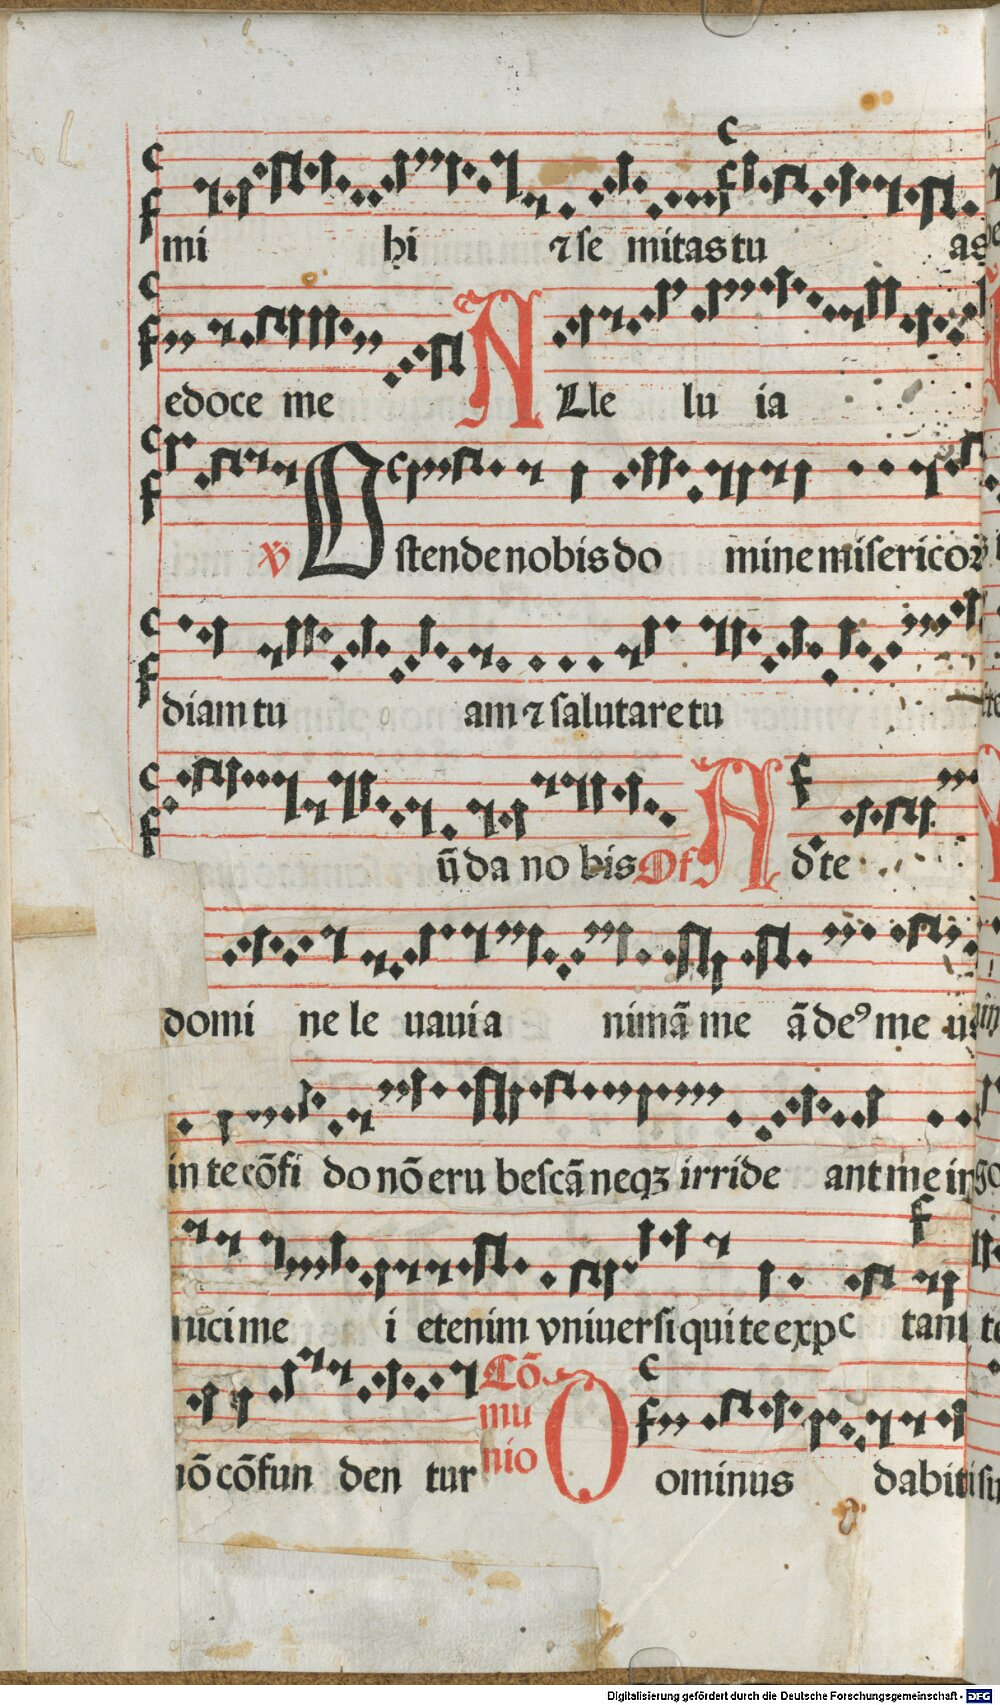 mi hi ⁊ se mitas tu as
edoce me ALle lu ia
℣ Ostende nobis do mine misericor
diam tu am ⁊ salutare tu
ū da no bis Of Ad te
domi ne le uaui a nimā me ā de⁹ me us
in te cōfi do nō eru bescā neqꝫ irride ant me in
nici me i etenim vniuersi qui te exp c tant
Cō
mu
nio
nō cōfun den tur Dominus dabit
Digitalisierung gefördert durch die Deutsche Forschungsgemeinschaft - DFG